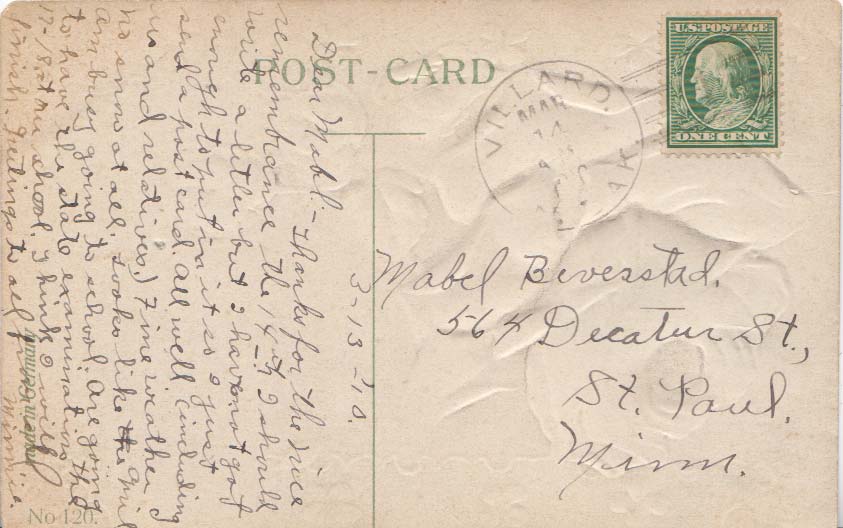 POST-CARD
U.S. POSTAGE
ONE CENT
VILLARD,
MAR
14
3-13-10.
Dear Mabel:- Thanks for the nice
remembrance the 14th I should
write a letter but I have not got
enough to put in it so I just
send a post card. All well (including
us and relatives.) Fine weather
no snow at all. Looks like the
am busy going to school. Are going
to have the state examinations the
17-18 at the school. I think I will
finish. Greetings to all from
Winnie.
Mabel Beverstad.
564 Decatur St.,
St. Paul,
Minn.
No 120.